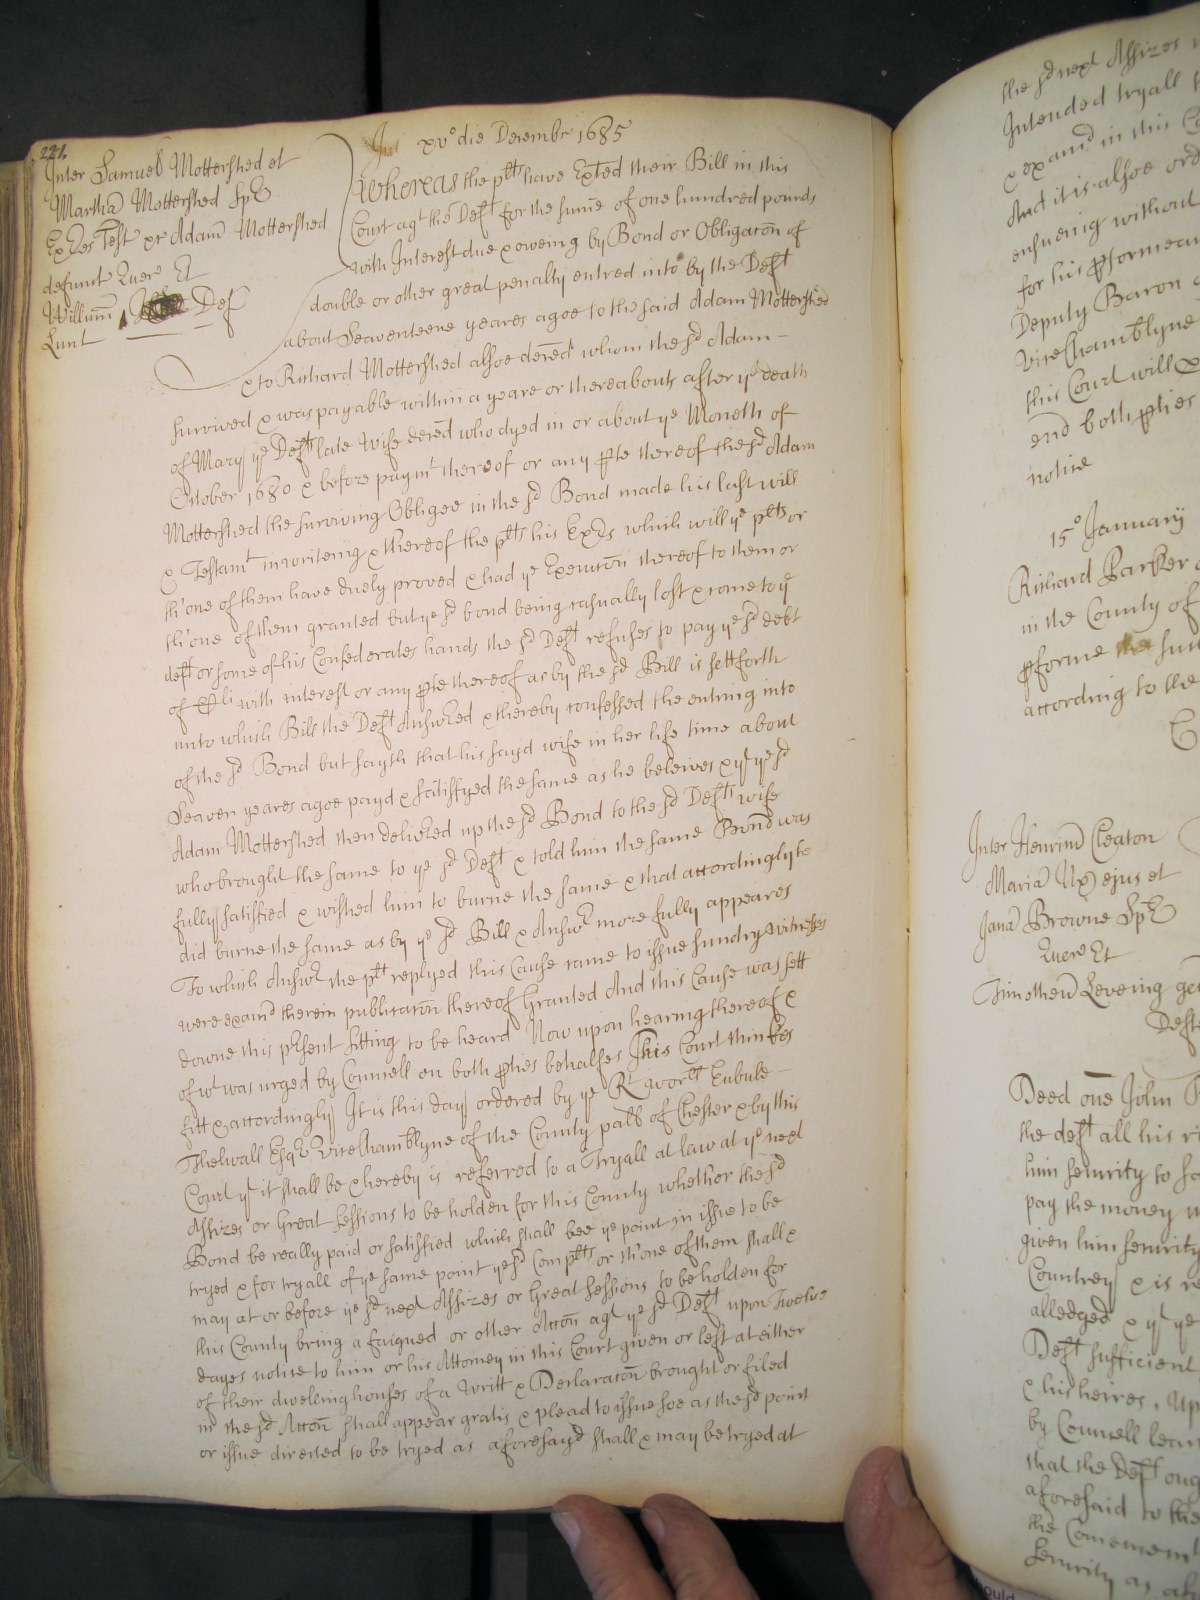 221.
Inter Samuel Mottershed et
Martha Mottershed Sp
Exes Test xr Adam Mottershed
defunct Quere Et
Willum Def
Lunt
xv° die Decembr 1685
Whereas the plts have Exted their Bill in this
Court agt the Deft for the sume of one hundred pounds
with Interest due x oweing by Bond or Obligacon of
double or other great penalty entred into by the Deft
about Seaventeene yeares agoe to the said Adam Mottershed
x to Richard Mottershed alsoe deced whom the sd Adam
survived x was payable within a yeare or thereabouts after ye death
of Mary ye Defts late wife deced who dyed in or about ye Moneth of
October 1680 x before paymt thereof or any pte thereof the sd Adam
Mottershed the surviving Obligee in the sd Bond made his last will
x Testamt in writeing x thereof the plts his Exrs which will ye plts or
th'one of them have duely proved x had ye Execucon thereof to them or
th'one of them granted but ye sd bond being casually lost x come to ye
deft or some of his Confederates hands the sd Deft refuses to pay ye sd debt
of Cli with interest or any pte thereof as by the sd Bill is sett forth
unto which Bill the Deft Answred x thereby confessed the entring into
of the sd Bond but sayth that his sayd wife in her life time about
Seaven yeares agoe payd x satisfyed the same as he beleives x yt ye sd
Adam Mottershed then delivred up the sd Bond to the sd Defts wife
who brought the same to ye sd Deft x told him the same Bond was
fully satisfied x wished him to burne the same x that accordingly he
did burne the same as by ye sd Bill x Answr more fully appeares
To which Answr the plt replyed this Cause came to issue sundry witnesses
were examd therein publicacon thereof Granted And this Cause was sett
downe this prsent sitting to be heard Now upon hearing thereof x
of wt was urged by Councell on both pties behalfes This Court thinkes
fitt x accordingly It is this day ordered by ye Rt worll Eubule
Thelwall Esqr Vicechamblyne of the County pall of Chester x by this
Court yt it shall be x hereby is referred to a Tryall at law at ye next
Assizes or Great Sessions to be holden for this County whether the sd
Bond be really paid or satisfied which shall bee ye point in issue to be
tryed x for tryall of ye same point ye sd Complts or th'one of them shall x
may at or before ye sd next Assizes or Great Sessions to be holden for
this County bring a faigned or other Accon agt ye sd Deft upon Twelve
dayes notice to him or his Attorney in this Court given or left at either
of their dwelling houses of a Writt x Declaracon brought or filed
in the sd Accon shall appear gratis x plead to issue soe as the sd point
or issue directed to be tryed as aforesayd shall x may be tryed at
the sd next Assizes
Intended tryall
x examd in this
And it is alsoe ord
ensueing without
for his pformean
Deputy Baron
Vicechamblyne
this Court will x
end both pties
notice
15° January
Richard Parker
in the County of
pforme the sum
according to the
Inter Henricu Cleaton
Maria Ux ejus et
Jana Browne Sp
Quere Et
Timotheu Leveing ge
Deft
Deed one John
the deft all his ri
him security to sa
pay the money
given him security
Countrey x is re
alledged x yt ye
Deft sufficient
x his heires, Up
by Councell lear
that the Deft oug
aforesaid to the
the Comencemt
security as